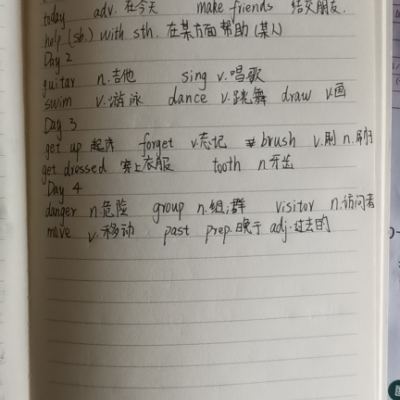 today adv. 在今天 make friends 结交朋友.
help (sb.) with sth. 在某方面帮助(某人)
Day 2
guitar n.吉他 sing v.唱歌
swim v.游泳 dance v.跳舞 draw v.画
Day 3
get up 起床 forget v.忘记 brush v.刷 n.刷子
get dressed 穿上衣服 tooth n.牙齿
Day 4
danger n.危险 group n.组;群 visitor n.访问者
move v.移动 past prep.晚于 adj.过去的